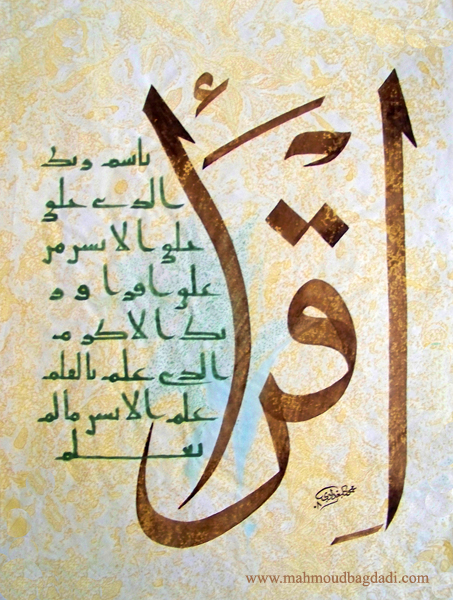 اِقْرَأ
باسم ربك
الذي خلق
خلق الانسن من
علق اقرا و ر
بك الاكرم
الذي علم بالقلم
علم الانسن مالم
يعلم
www.mahmoudbagdadi.com